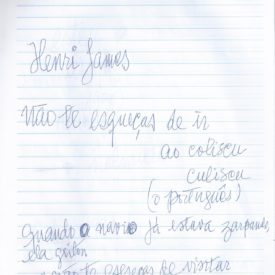 Henri James
Não te esqueças de ir
ao coliseu
culiseu
(o português)
Quando o navio já estava zarpando,
ela gritou
não te esqueças de visitar